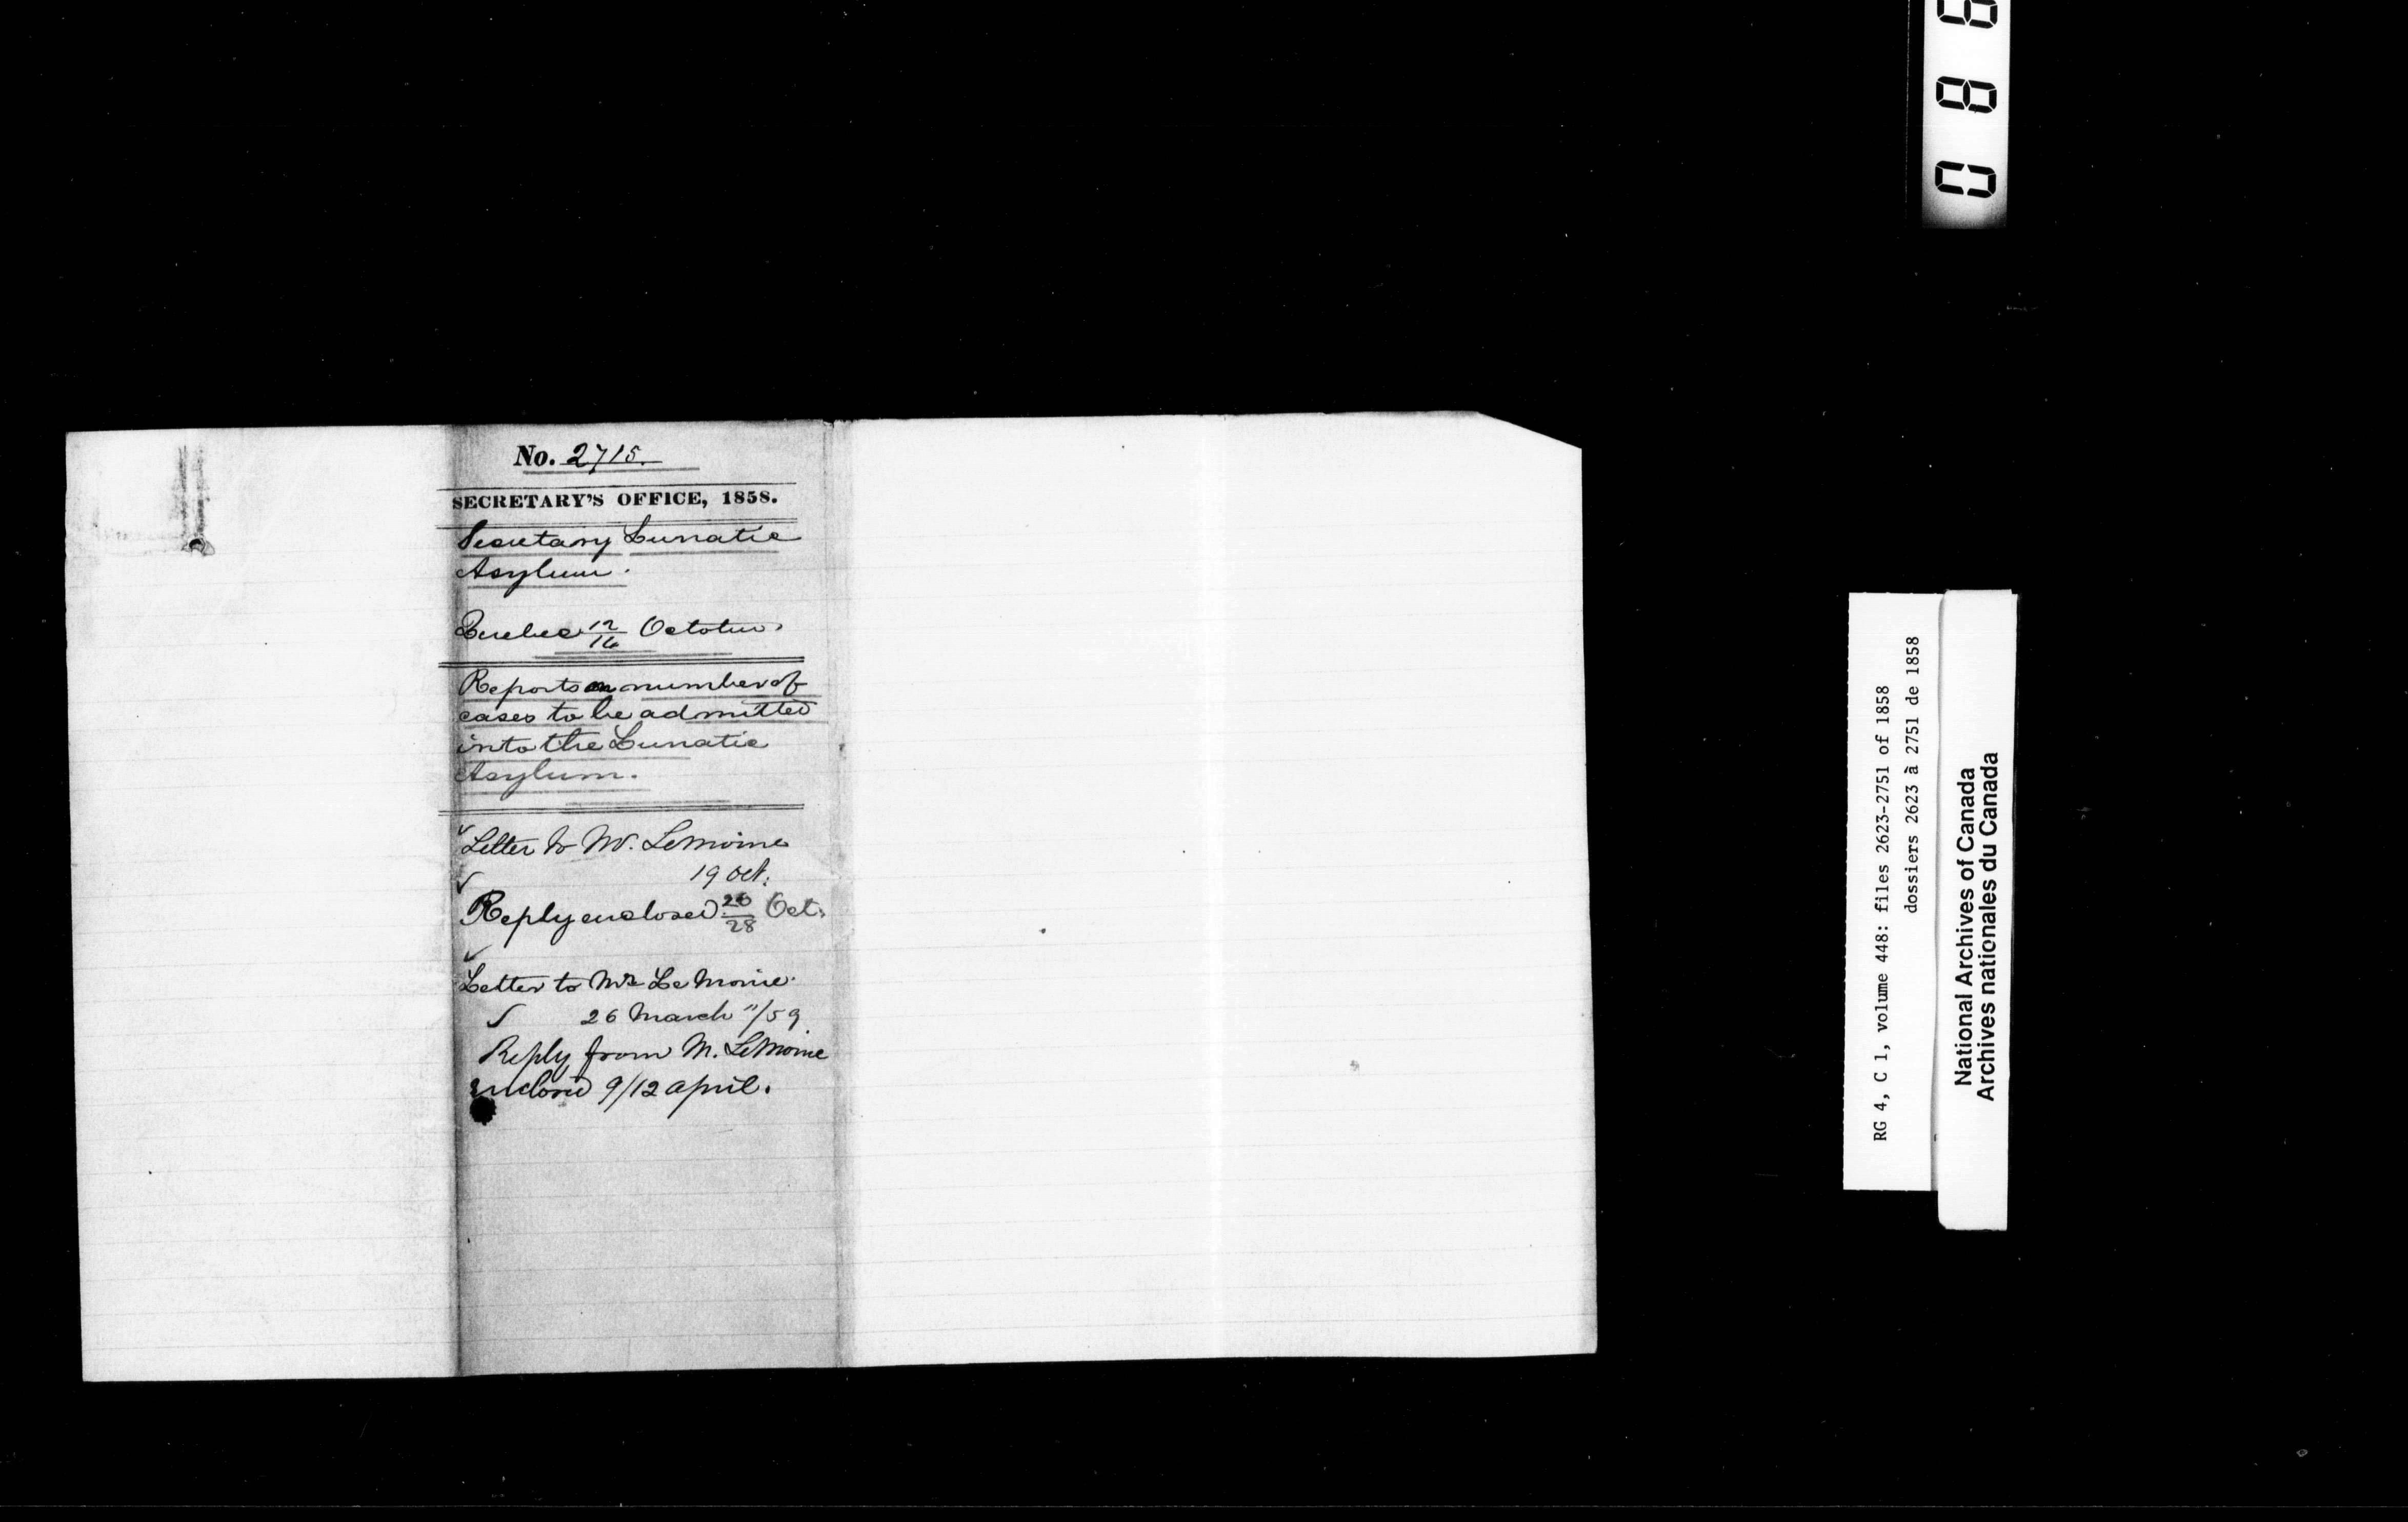 No. 2715.
SECRETARY'S OFFICE, 1858.
Secretary Lunatic
Asylum.
Quebec 12/16 October
Reports on number of
cases to be admitted
into the Lunatic
Asylum.
Letter to Mr. LeMoine
19 Oct.
Reply enclosed 26/28 Oct.
Letter to Mr LeMoine.
26 March "/59
Reply from M. LeMoine
enclosed 9/12 april.
0 8 8
RG 4, C 1, volume 448: files 2623-2751 of 1858
dossiers 2623 à 2751 de 1858
National Archives of Canada
Archives nationales du Canada